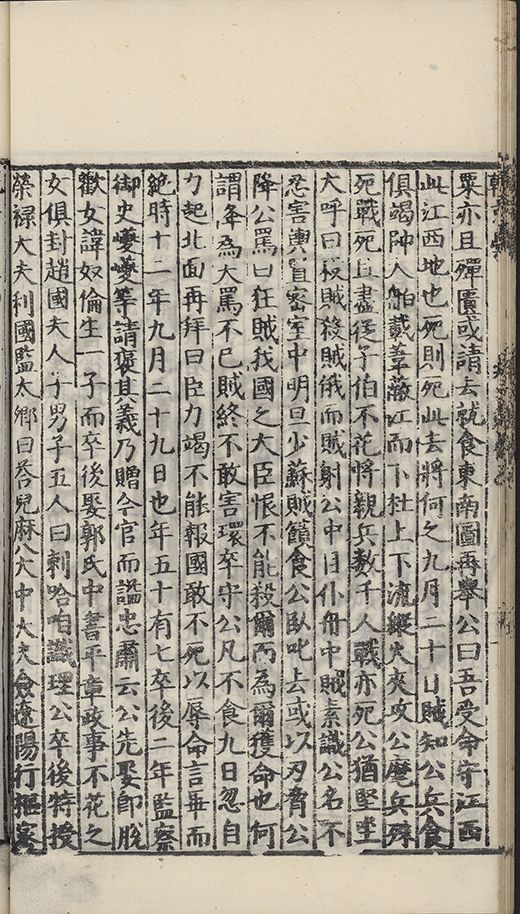 粟亦且殫匱或請去就食東南圖再舉公曰吾受命守江西
此江西地也死則死此去將何之九月二十日賊知公兵食
俱竭帥人船戴葦蔽江而下杜上下流縱火夾攻公麾兵殊
死戰死且盡從子伯不花將親兵數千人戰亦死公猶堅坐
大呼曰殺賊殺賊俄而賊射公中目仆舟中賊素識公名不
忍害輿置密室中明旦少蘇賊饋食公臥叱去或以刃脅公
降公罵曰狂賊我國之大臣恨不能殺爾而為爾獲命也何
謂夅為大罵不已賊終不敢害環卒守公凡不食九日忽自
力起北面再拜曰臣力竭不能報國敢不死以辱命言畢而
絶時十二年九月二十九日也年五十有七卒後二年監察
御史等請褒其義乃贈今官而諡忠肅云公先娶即脫
歡女諱奴倫生一子而卒後娶郭氏中書平章政事不花之
女俱封趙國夫人子男子五人曰剌哈咱識理公卒後特授
榮祿大夫利國監太卿曰荅兒麻八次中大夫僉遼陽行樞密